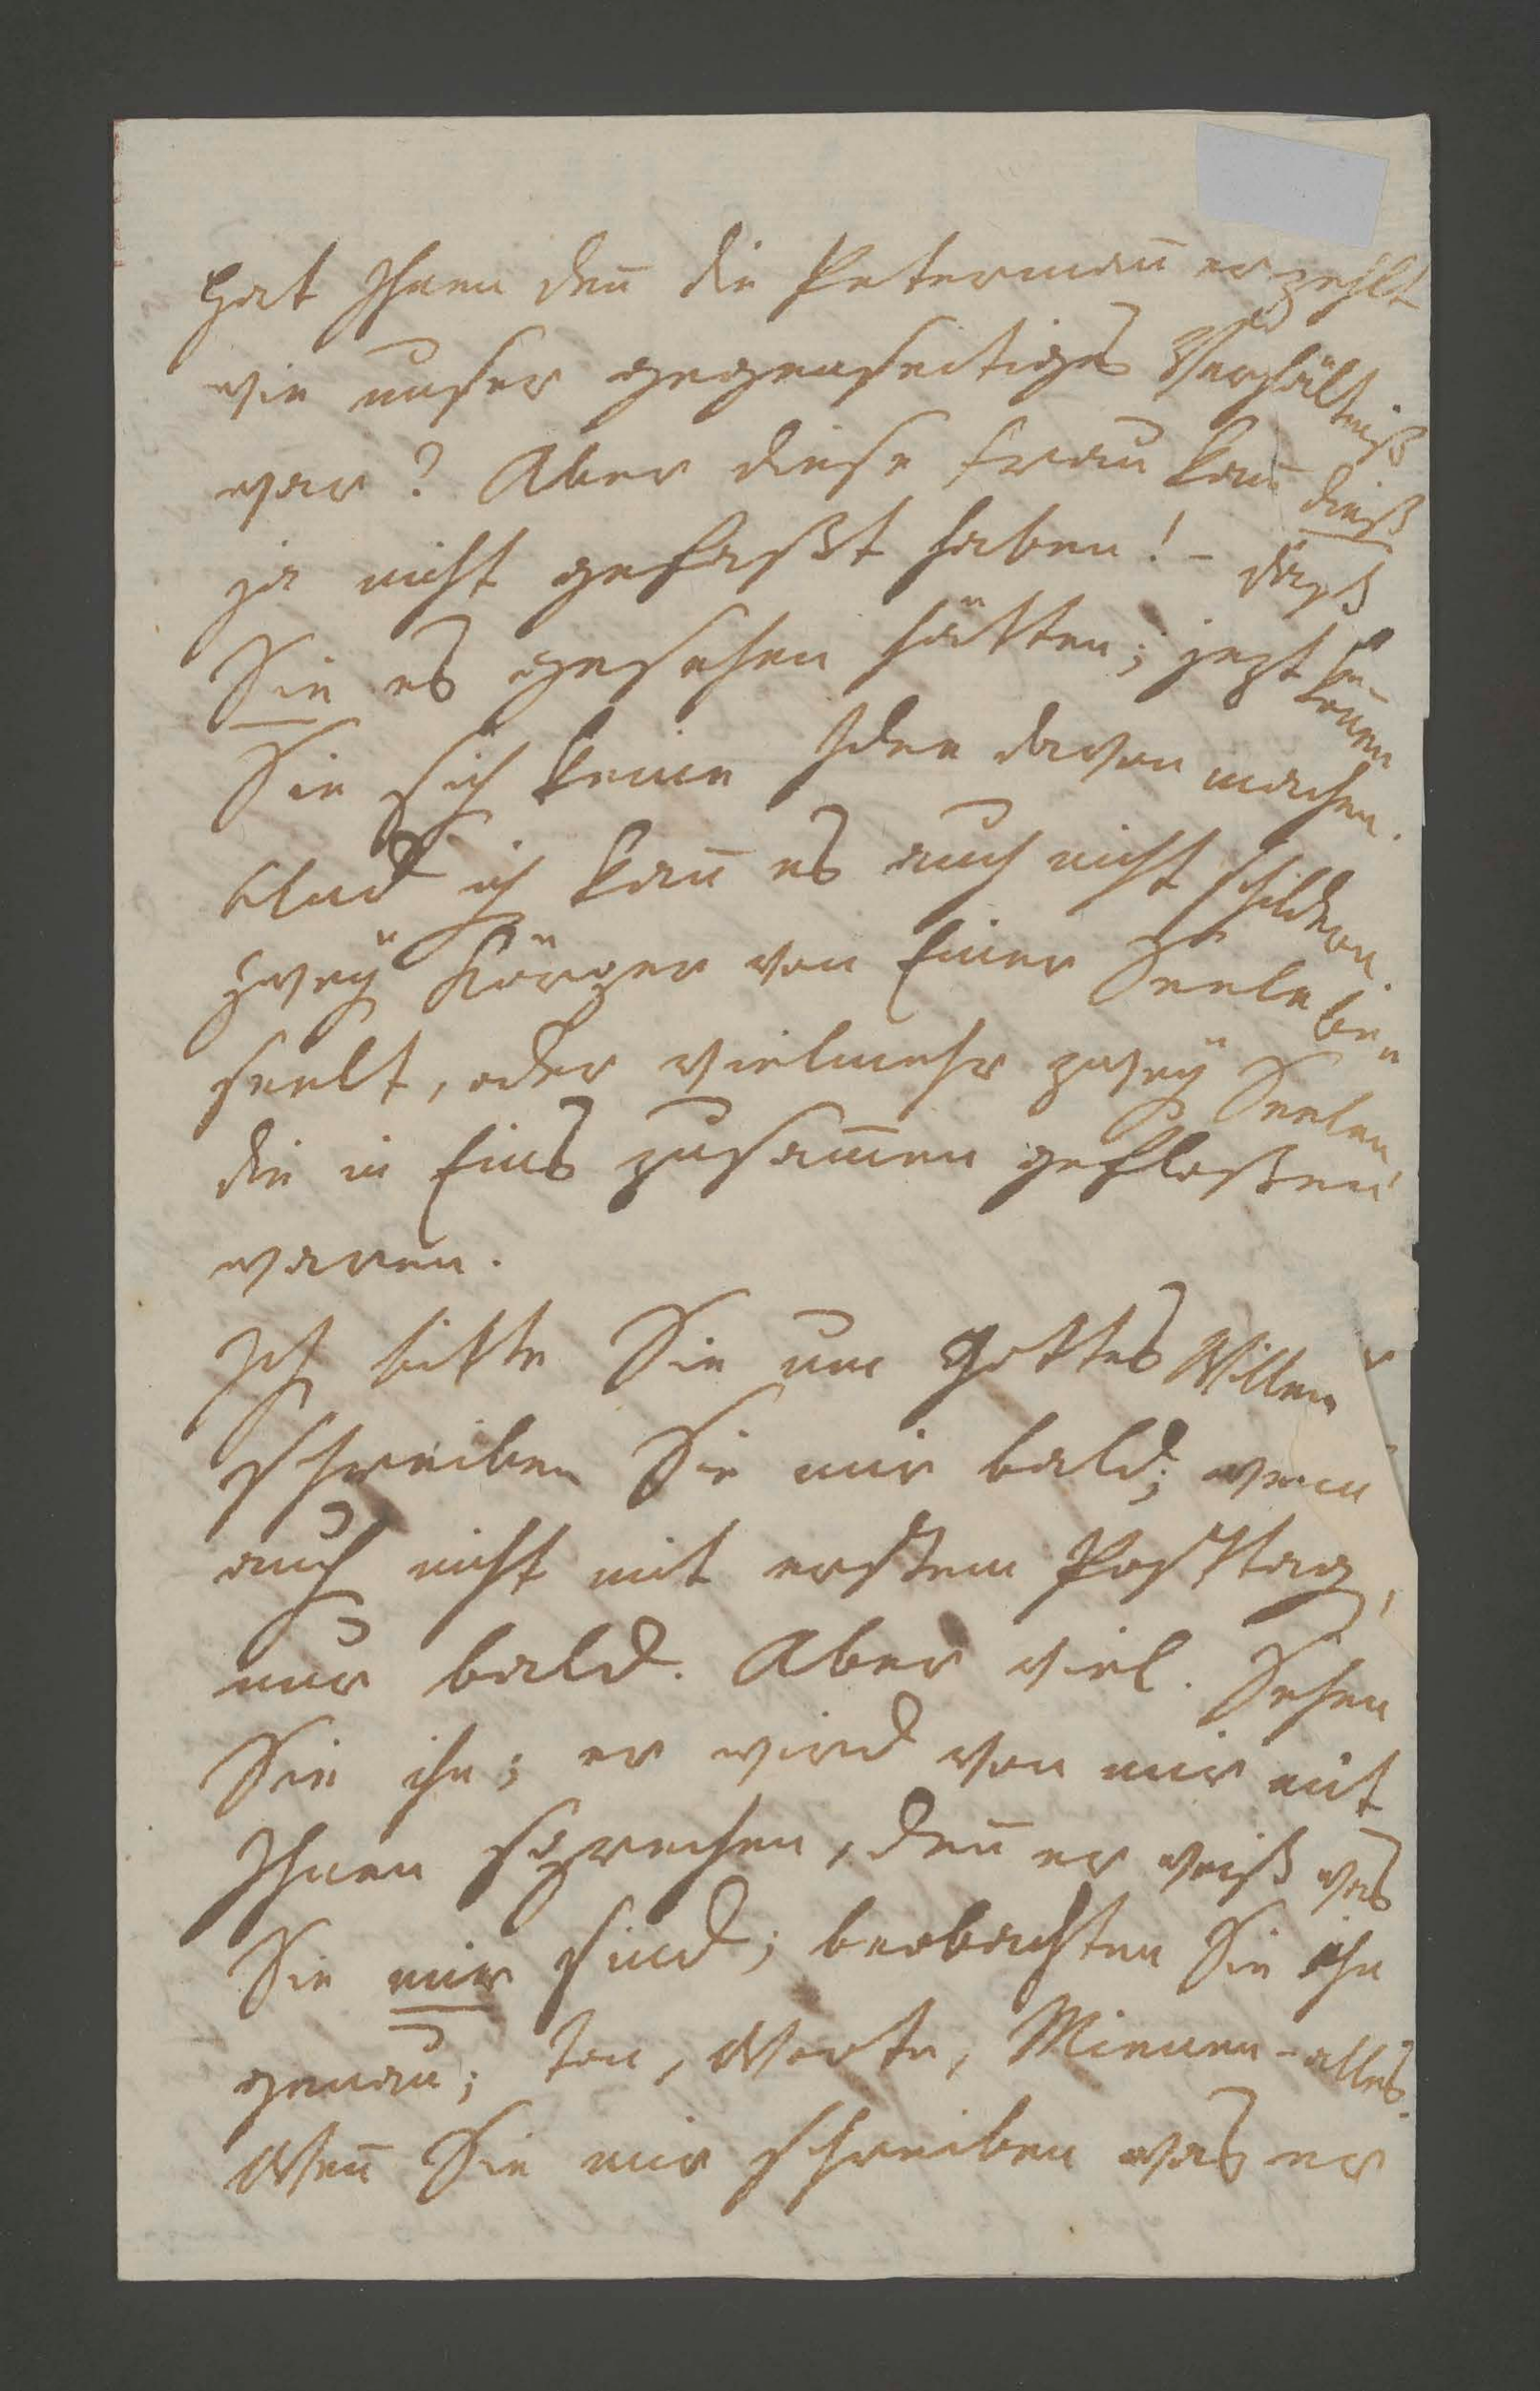 Hat Ihnen deñ die Petermañ erzehlt
wie unser gegenseitiges Verhältniß
war? Aber diese Frau kañ dieß
ja nicht gefaßt haben! – daß
Sie es gesehen hätten; jezt kö-
nnen
Sie sich keine Idee davon machen.
Und ich kañ es auch nicht schildern.
Zweÿ Körper von Einer Seele be-
seelt, oder vielmehr zweÿ Seelen,
die in Eins zusam̄en gefloßen
waren.
Ich bitte Sie um Gottes Willen
schreiben Sie mir bald; wenn
auch nicht mit erstem Posttag,
nur bald. Aber viel. Sehen
Sie ihn; er wird von mir mit
Ihnen sprechen, deñ er weiß was
Sie mir sind; beobachten Sie ihn
genau; Ton, Worte, Mienen – alles.
Weñ Sie mir schreiben was er